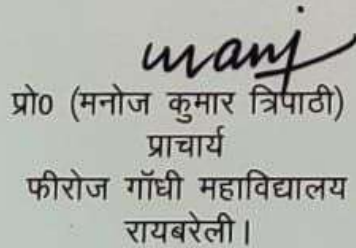 manj
प्रो0 (मनोज कुमार त्रिपाठी)
प्राचार्य
फीरोज गॉधी महाविद्यालय
रायबरेली।